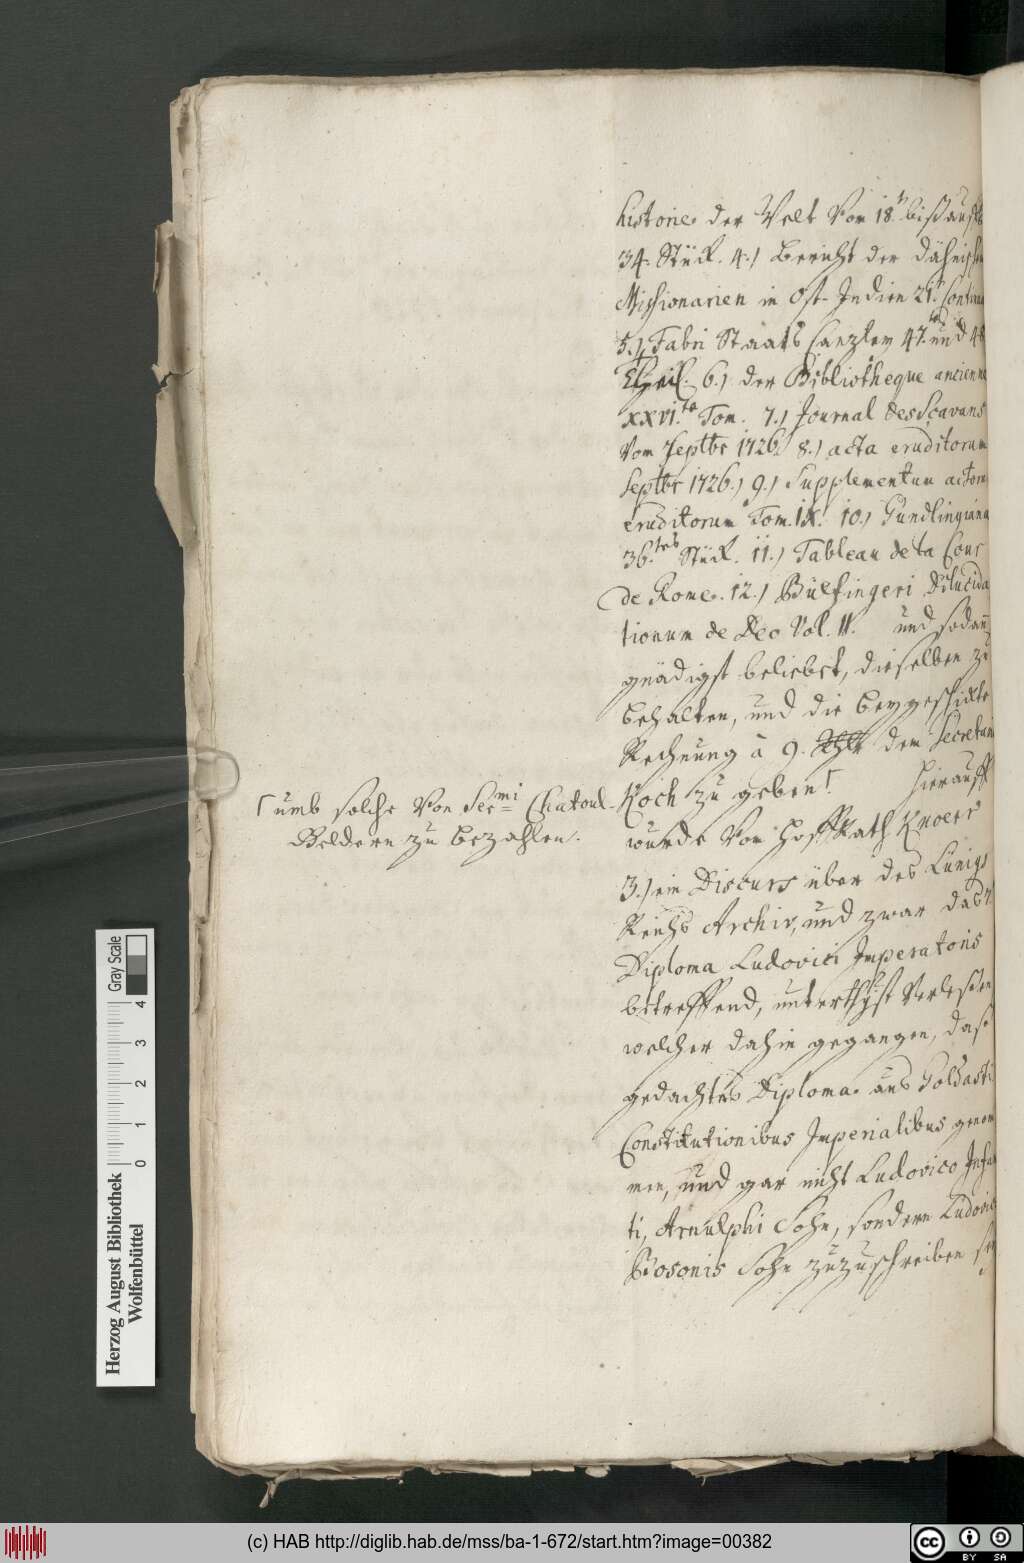 historie. der Welt Von 18.n bißauff
34. Stück. 4.) Bericht der Dähnisch
Missionarien in Ost-Indien 21.
5.) Fabri Staats Canzley 47. und 48
Theil. 6.) der Bibliotheque ancienne
XXVI.te Tom. 7.) Journal des Scavans
Vom Septbr 1726. 8.) acta eruditorum
Septbr 1726.) 9.) Supplementum actor
eruditorum Tom. IX. 10.) Gundlingiana
36.tes Stück. 11.) Tableau de la Cour
de Rome. 12.) Bülfingeri Dilucida
tionum de Deo Vol. II. und sodann
gnädigst beliebet, dieselben zu
behalten, und die beygeschickte
Rechnung à 9. Thlr dem Secretari
Koch zu geben⌈ Hierauff
⌈ umb solche Von Ser=mi Chatoul-
Geldern zu bezahlen.
wurde Von HoffRath Knoerr
3.) ein Discurs über des Lünigs
Reichs Archiv, und zwar das
Diploma Ludovici Imperatoris
betreffend, unterthgst Verleßen
welcher dahin gegangen, daß
gedachtes Diploma. aus Goldasti
Constitutionibus Imperialibus genom
men, und gar nicht Ludovico Infan
ti, Arnulphi Sohn, sondern Ludovic
Bosonis Sohn zuzuschreiben sey
Herzog August Bibliothek
Wolfenbüttel
Gray Scale
0 1 2 3 4
(c) HAB http://diglib.hab.de/mss/ba-1-672/start.htm?image=00382
cc BY SA